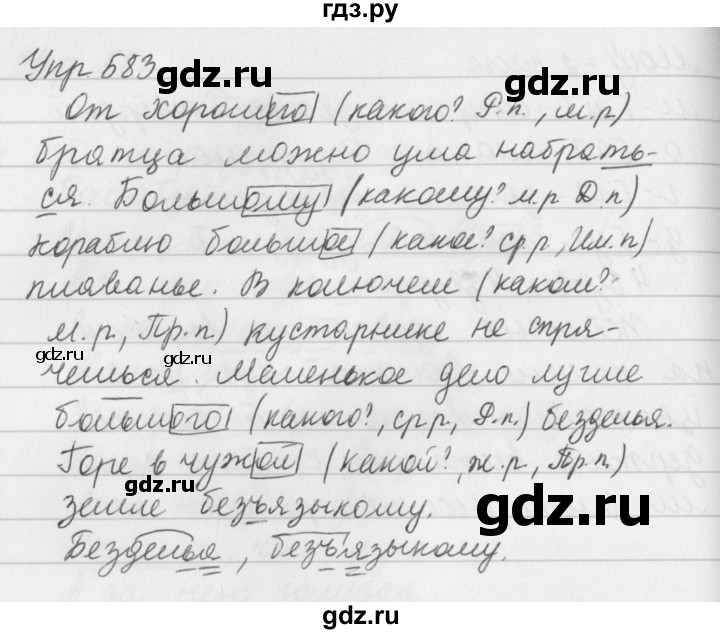 гдз.ру
Упр 583
gdz.ru gdz.ru
От хорошего (какого? Р.п., м.р)
братца можно ума набрать-
ся. Большому (какому? м.р Д.п)
кораблю большое (какое? ср.р, Им.п)
плаванье. В колючем (каком?
м.р, Пр.п) кустарнике не спря-
gdz.ru gdz.ru
чешься. Маленькое дело лучше
большого (какого?, ср.р, Р.п.) безделья.
Горе в чужой (какой?, ж.р, Пр.п.)
gdz.ru gdz.ru
земле безъязыкому.
Безделья, безъязыкому.
gdz.ru